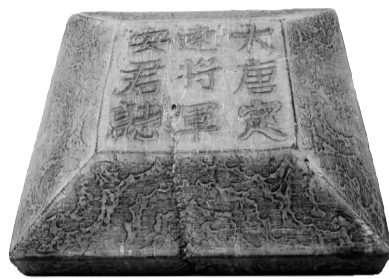 大唐定
遠將軍
安君誌